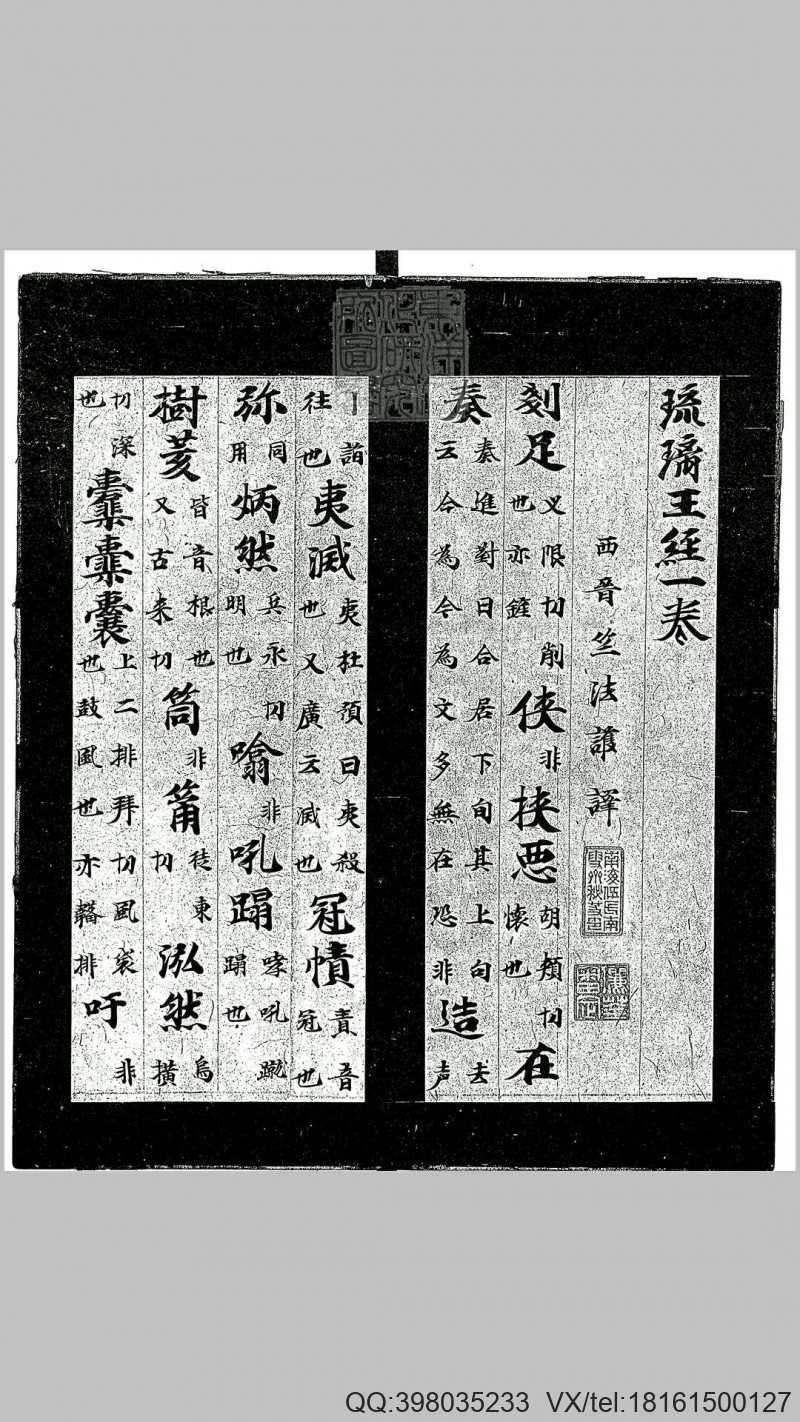 琉璃王経一卷
西晋竺法護譯
刻足乂限切削也亦鏟俠非挾惡胡頰切懷也在
奏奏進對日合居下句其上句云合為令為文多無在恐非造去声
丨詣往也夷滅夷杜預曰夷殺也又廣云滅也冠幘責音冠也
弥同用炳然兵永切明也噏非吼蹋哮吼蹴蹋也
樹荄皆音根也又古来切筒非筩徒東切泓然烏橫
切深也囊上二排拜切風袋也鼓風也亦韛排吁非
QQ:398035233 VX/tel:18161500127